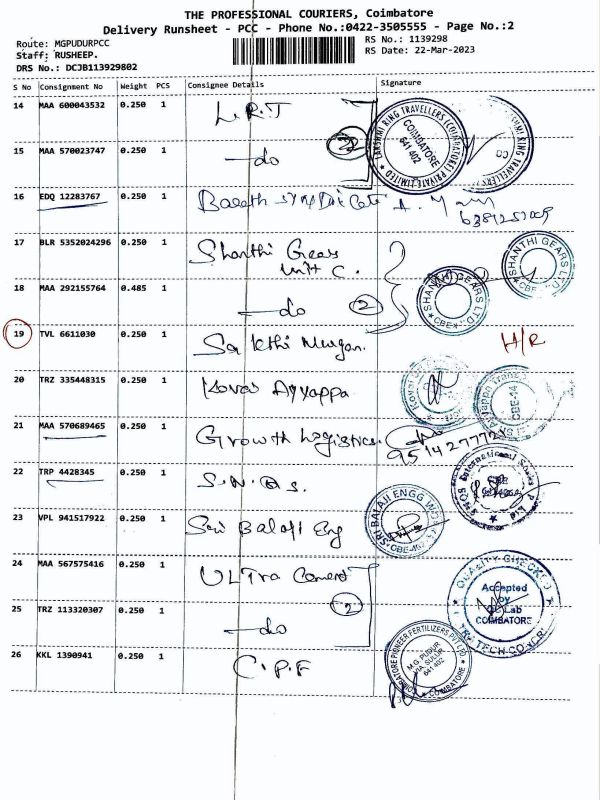 THE PROFESSIONAL COURIERS, Coimbatore
Delivery Runsheet - PCC - Phone No.:0422-3505555 - Page No.:2
Route: MGPUDURPCC
RS No.: 1139298
Staff: RUSHEEP.
RS Date: 22-Mar-2023
DRS No.: DCJB113929802
S No Consignment No Weight PCS Consignee Details Signature
14 MAA 600043532 0.250 1 L.R.T
LAKSHMI RING TRAVELLERS (COIMBATORE) PRIVATE LIMITED
COIMBATORE 641 402
15 MAA 570023747 0.250 1 -do 2
16 EDQ 12283767 0.250 1
17 BLR 5352024296 0.250 1 Shanthi Gears
Unit C.
SHANTHI GEARS LTD CBE
18 MAA 292155764 0.485 1 -do 2
SHANTHI GEARS LTD CBE
19 TVL 6611030 0.250 1 Sakthi Murgan. H/R
20 TRZ 335448315 0.250 1 Kovai Ayyappa
CBE-14
21 MAA 570689465 0.250 1 Growth Logistics.
22 TRP 4428345 0.250 1
23 VPL 941517922 0.250 1 Sri Balaji Eng
SRI BALAJI ENGG
24 MAA 567575416 0.250 1 ULTra Cement
QUALITY CHECKED
Accepted
by
QC Lab
COIMBATORE
25 TRZ 113320307 0.250 1 -do 2
26 KKL 1390941 0.250 1 C.P.F
COIMBATORE PIONEER FERTILIZERS PVT LTD
M.G. PUDUR
VIA SULUR
641 402
COIMBATORE